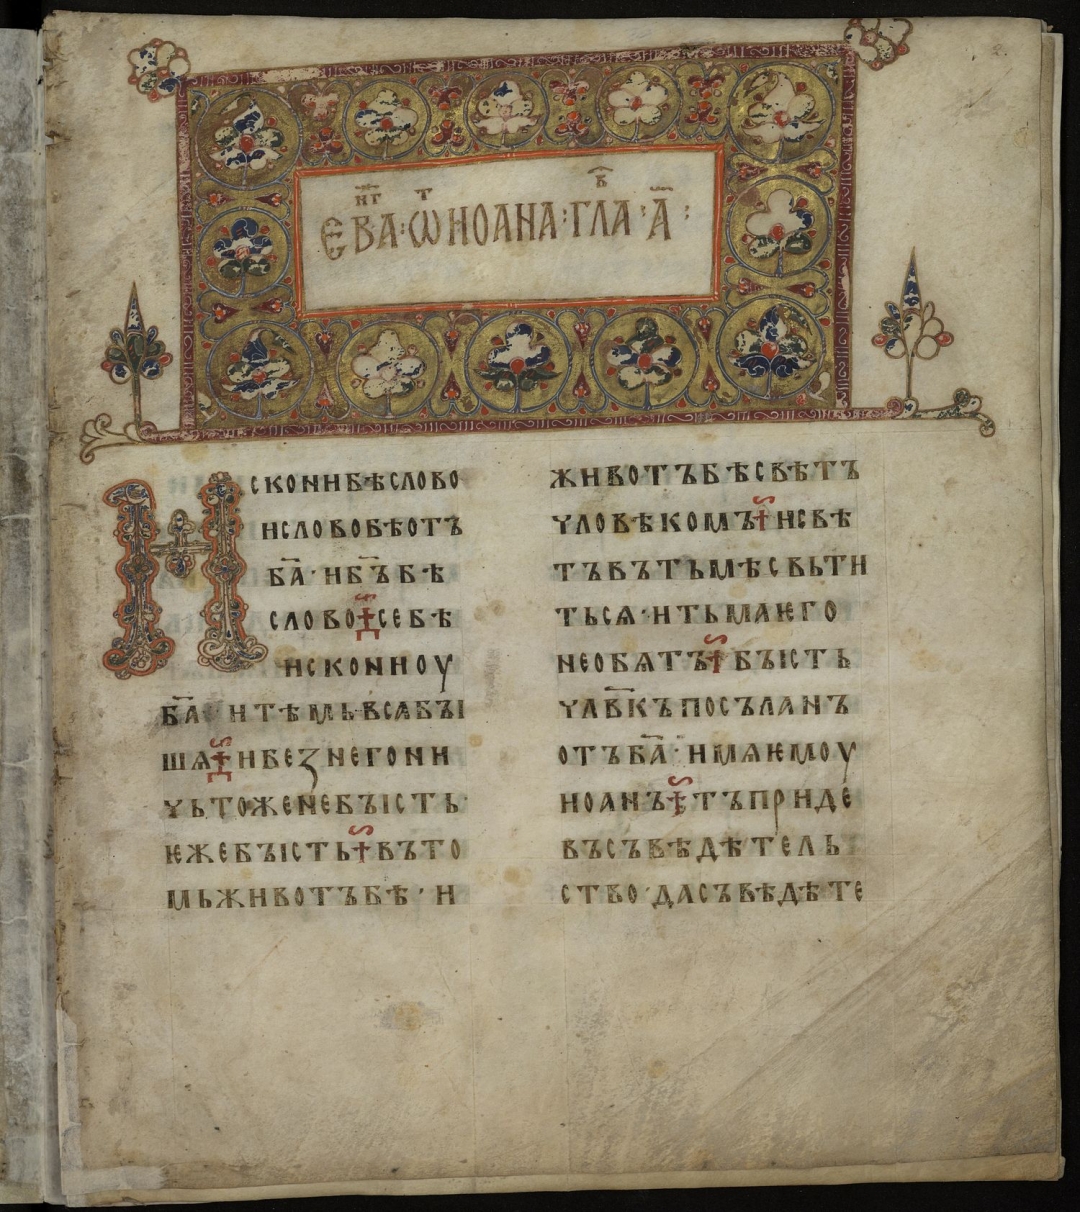 ЕВАНГ҃ · Ѿ ИОАНА : ГЛАВ · А҃ :
Искони бѣ слово
и слово бѣ отъ
ба҃ · и бъ҃ бѣ
слово · се бѣ
искони оу
ба҃ · и тѣмь вса бꙑ
шѧ · и без него ни
чьтоже не бꙑсть ·
ѥже бꙑсть · въ то
мь животъ бѣ · и
животъ бѣ свѣтъ
чловѣкомъ · и свѣ
тъ въ тьмѣ свьти
тьсѧ · и тьма ѥго
не обѧтъ · бꙑсть
чл҃вкъ посъланъ
отъ ба҃ · имѧ ѥмоу
иоанъ · тъ приде
въ съвѣдѣтель
ство · да съвѣдѣте